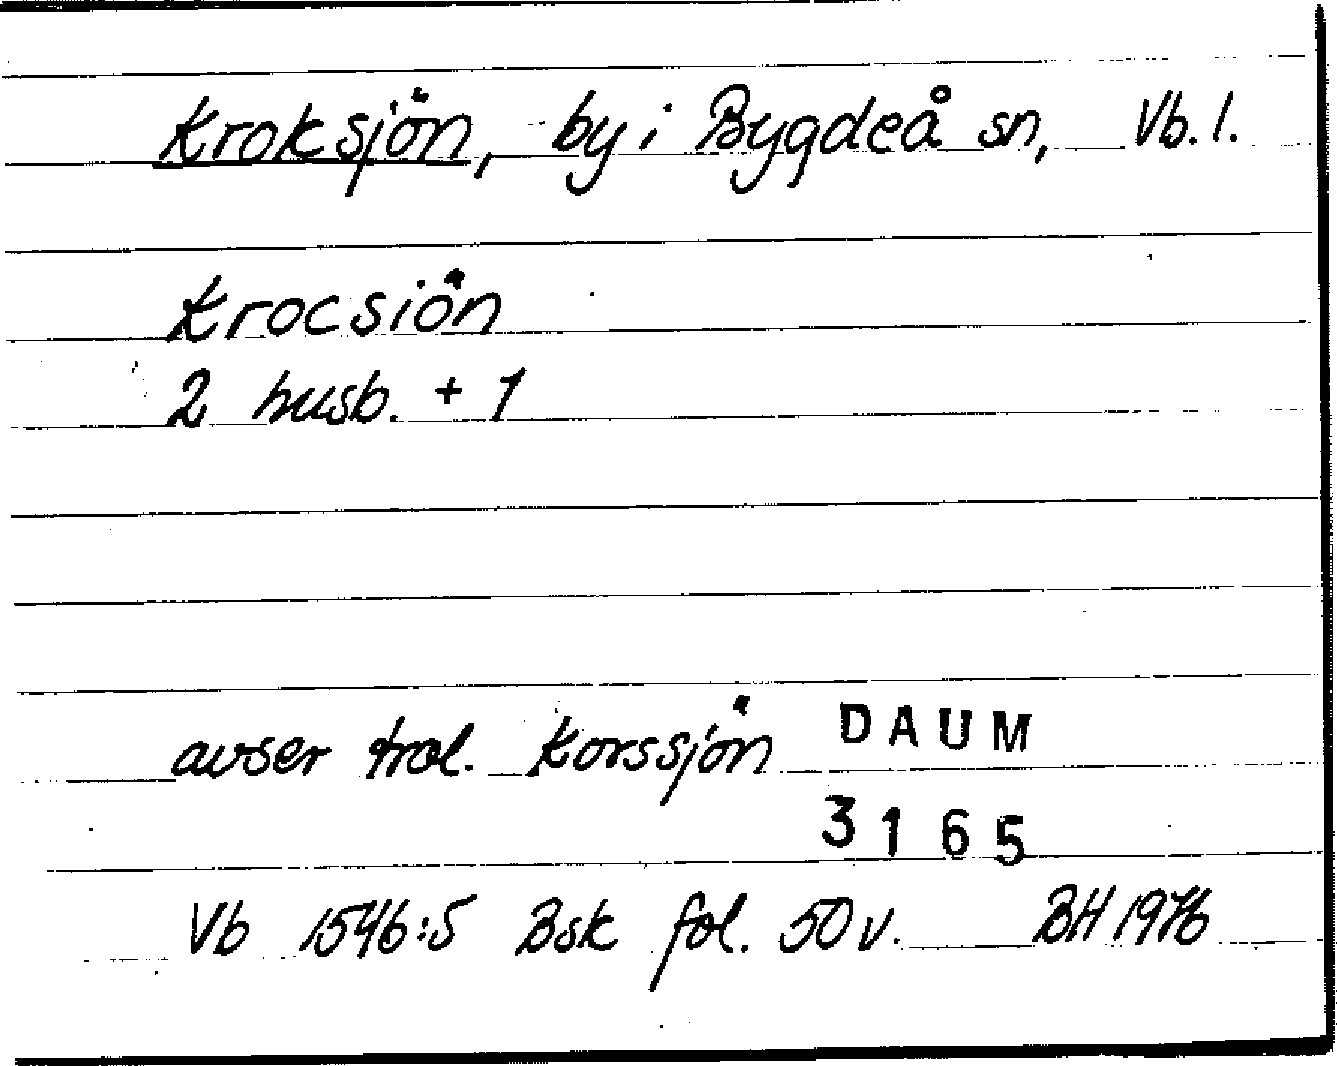 Kroksjön, by i Bygdeå sn, Vb. l.
Krocsiön
2 husb. + 1
avser trol. Korssjön
DAUM
3165
Vb 1546:5 Bsk fol. 50 v. BH 1976